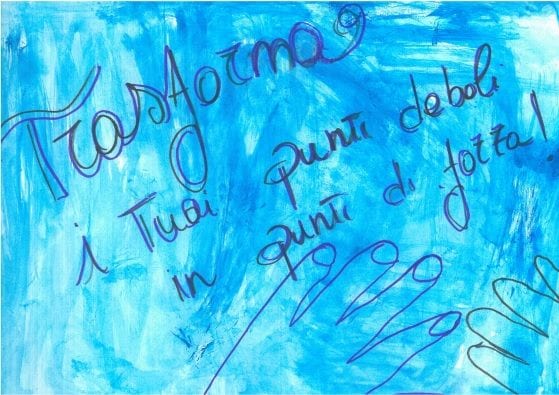 Trasforma
i Tuoi punti deboli
in punti di forza!